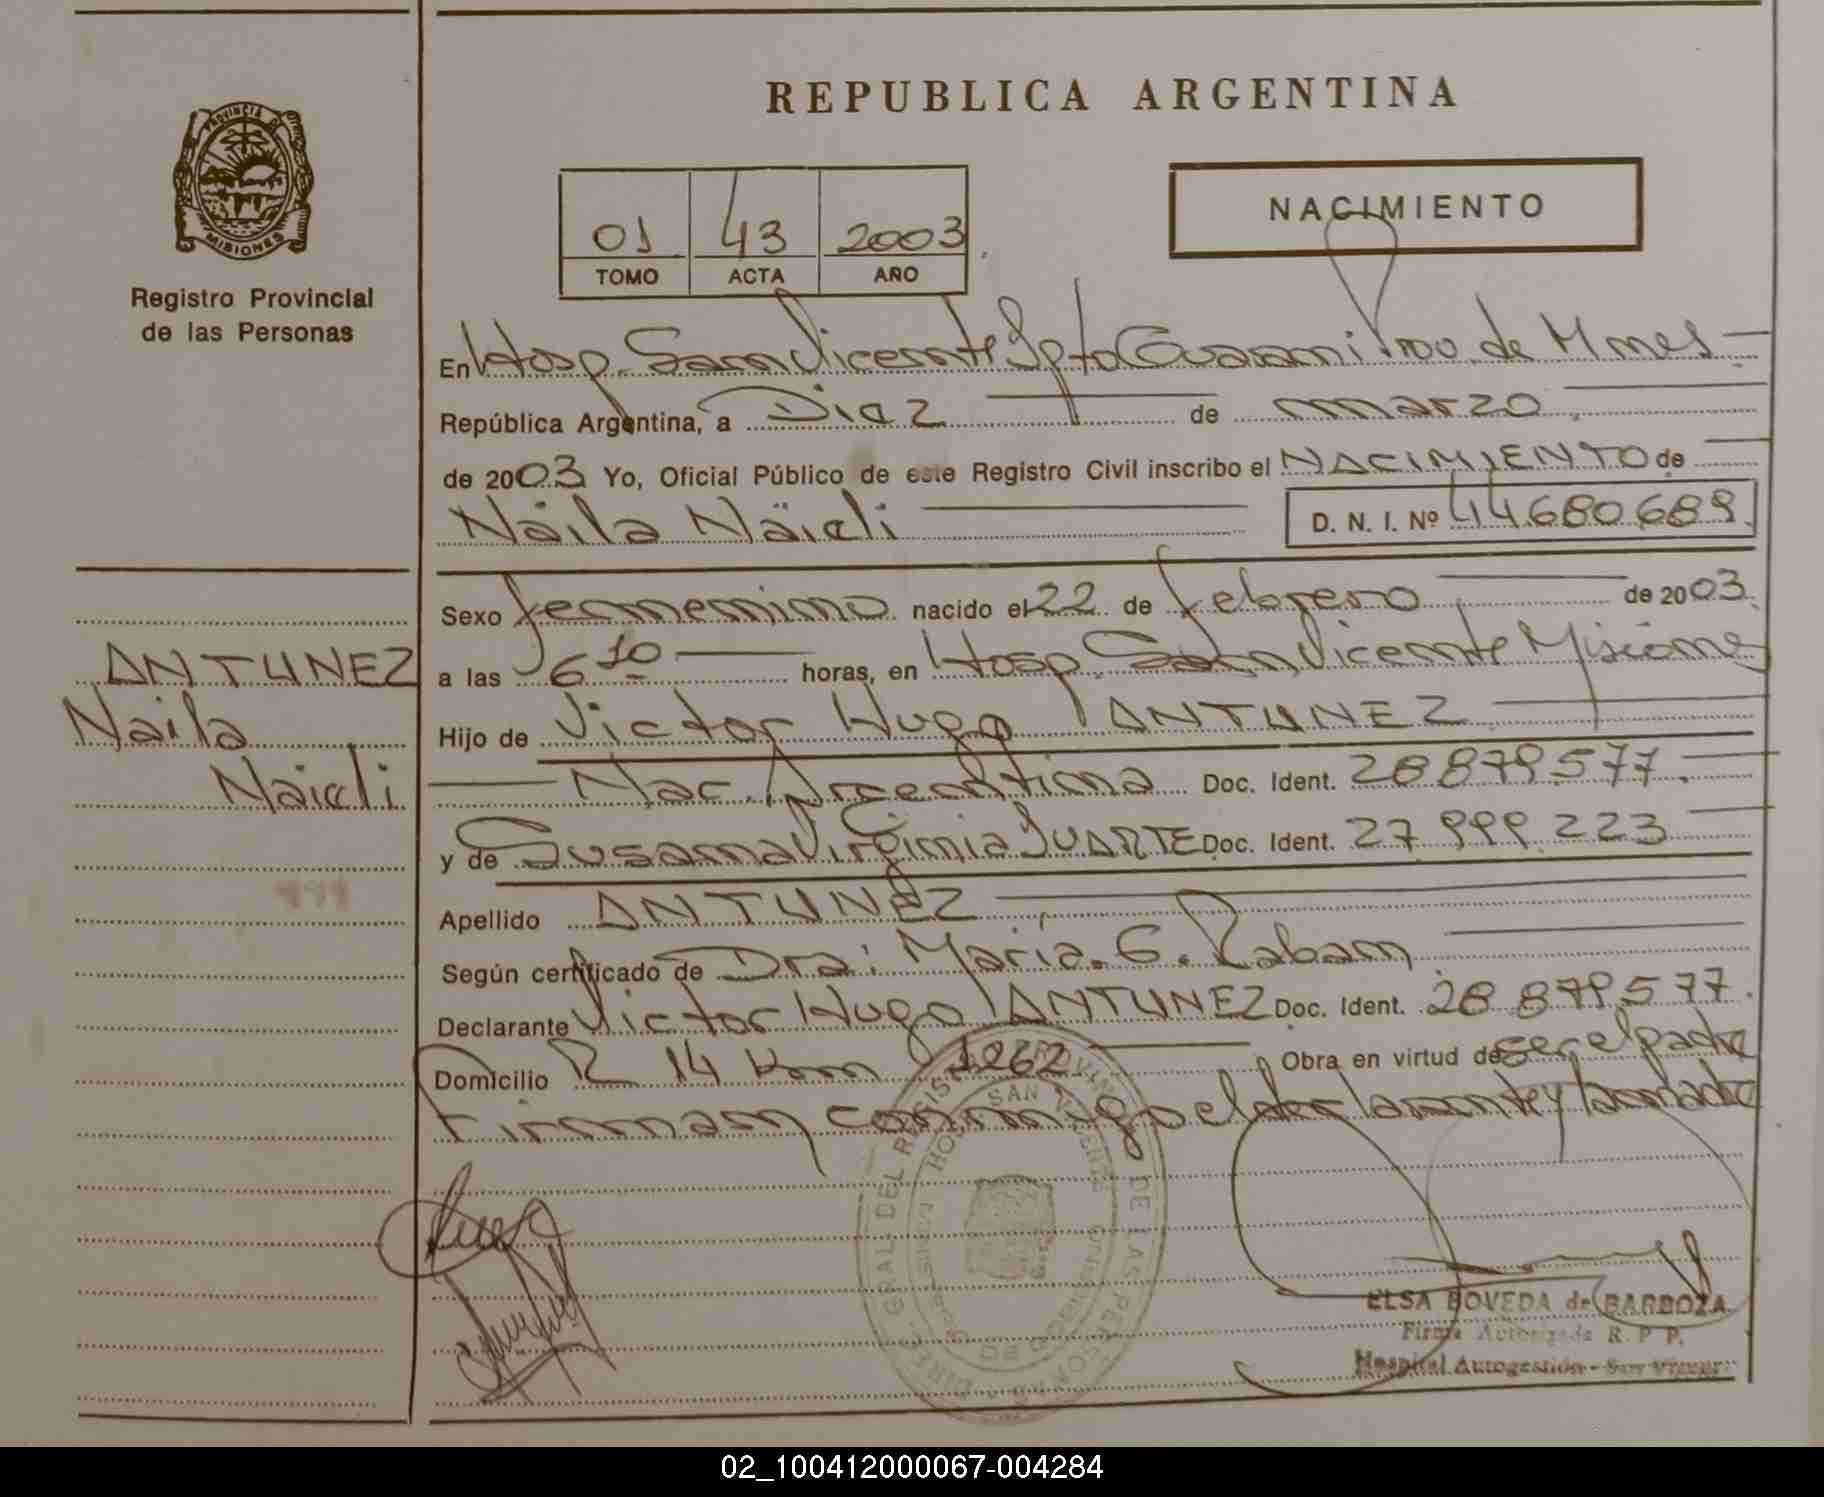 REPUBLICA ARGENTINA
PROVINCIA DE
MISIONES
Registro Provincial
de las Personas
01 43 2003
TOMO ACTA AÑO
NACIMIENTO
En Hosp. San Vicente Dpto Guarani Prov. de Mnes
República Argentina, a Dia 2 de marzo
de 2003 Yo, Oficial Público de este Registro Civil inscribo el NACIMIENTO de
Näila Näieli D. N. I. Nº 44680689
Sexo femenino nacido el 22 de febrero de 2003
a las 6 10 horas, en Hosp. San Vicente Misiones
Hijo de Victor Hugo ANTUNEZ
Nac. Argentina Doc. Ident. 28 879.577.
y de Susana Virginia DUARTE Doc. Ident. 27 999.223
Apellido ANTUNEZ
Según certificado de Dra: María. G. Rabam
Declarante Victor Hugo ANTUNEZ Doc. Ident. 28 879 577.
Domicilio R 14 Km 1262 Obra en virtud de ser el padre
Firman conmigo el declarante y la madre
ANTUNEZ
Naila
Näieli
SAN VICENTE
DE LAS PERSONAS
ELSA BOVEDA de BARBOZA
Firma Autorizada R. P. P.
Hospital Autogestión - San Vicente
02_100412000067-004284